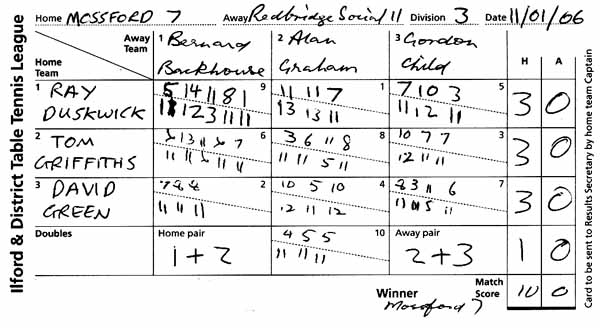 Ilford & District Table Tennis League
Home MOSSFORD 7 Away Redbridge Social 11 Division 3 Date 11/01/06
Away Team 1 Bernard Backhouse 2 Alan Graham 3 Gordon Child H A
Home Team
1 RAY DUSKWICK 9 1 5 3 0
5 14 11 8 1 11 11 7 7 10 3
11 12 3 11 11 13 13 11 11 12 11
2 TOM GRIFFITHS 6 8 3 3 0
13 11 7 3 6 11 8 10 7 7
11 11 11 11 11 11 5 11 12 11 11
3 DAVID GREEN 2 4 7 3 0
7 8 8 10 5 10 8 3 11 6
11 11 11 12 11 12 11 5 11
Doubles Home pair 1 + 2 10 Away pair 2 + 3 1 0
4 5 5
11 11 11
Winner Mossford 7 Match Score 10 0
Card to be sent to Results Secretary by home team Captain